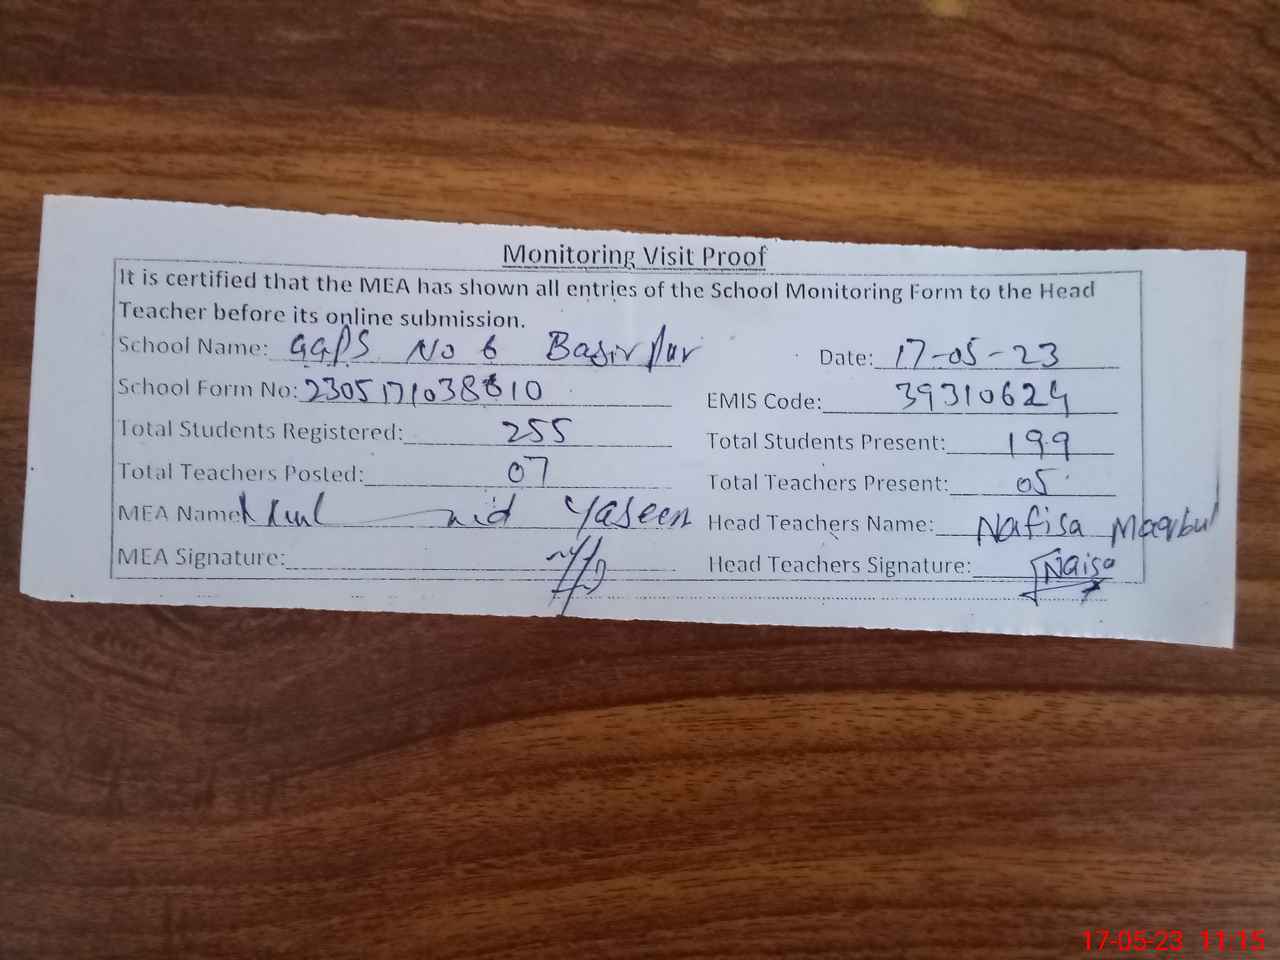 Monitoring Visit Proof
It is certified that the MEA has shown all entries of the School Monitoring Form to the Head
Teacher before its online submission.
School Name: GGPS No 6 Basirpur Date: 17-05-23
School Form No: 2305171038610 EMIS Code: 39310624
Total Students Registered: 255 Total Students Present: 199
Total Teachers Posted: 07 Total Teachers Present: 05
MEA Name Yaseen Head Teachers Name: Nafisa Maqbul
MEA Signature: Head Teachers Signature: Naisa
17-05-23 11:15